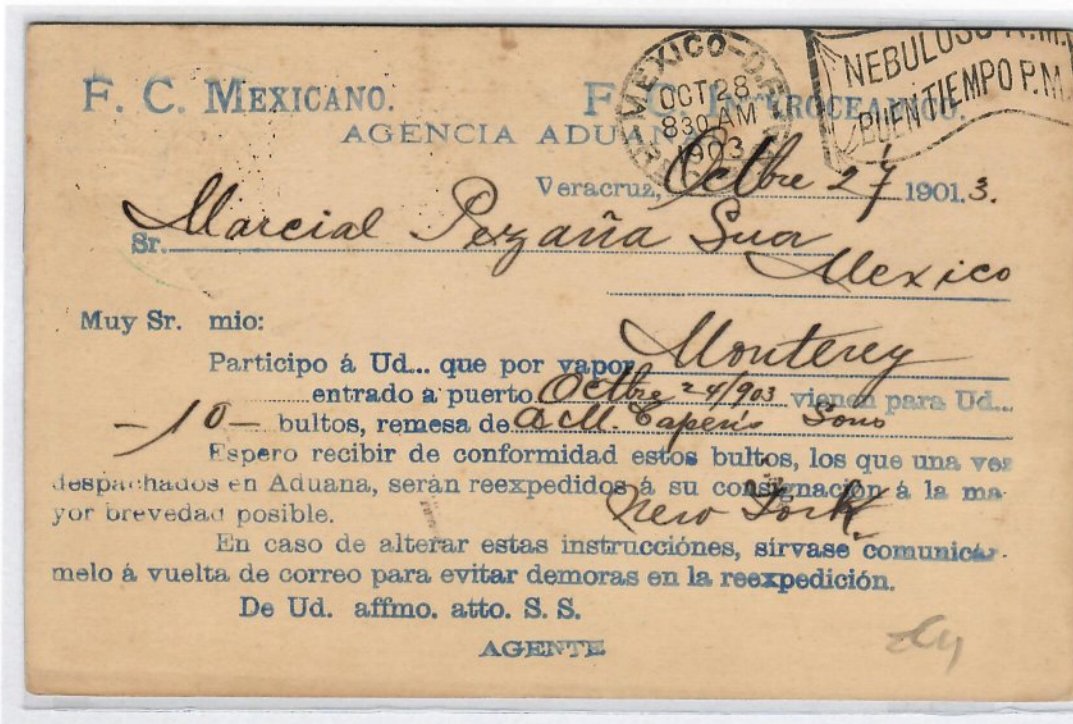 F. C. MEXICANO. F. C. INTEROCEANICO.
MEXICO-D.F.
OCT 28
830 AM
1903
NEBULOSO A.M.
BUEN TIEMPO P.M.
AGENCIA ADUANAL
Veracruz, Octbre 27 1901.3.
Sr. Marcial Pezaña Sucr
Mexico
Muy Sr. mio:
Participo á Ud... que por vapor Monterey
entrado a puerto Octbre 24/903 vienen para Ud...
-10- bultos, remesa de Sons
Espero recibir de conformidad estos bultos, los que una vez
despachados en Aduana, serán reexpedidos á su consignación á la ma-
yor brevedad posible. New York
En caso de alterar estas instrucciónes, sírvase comunicár-
melo á vuelta de correo para evitar demoras en la reexpedición.
De Ud. affmo. atto. S. S.
AGENTE